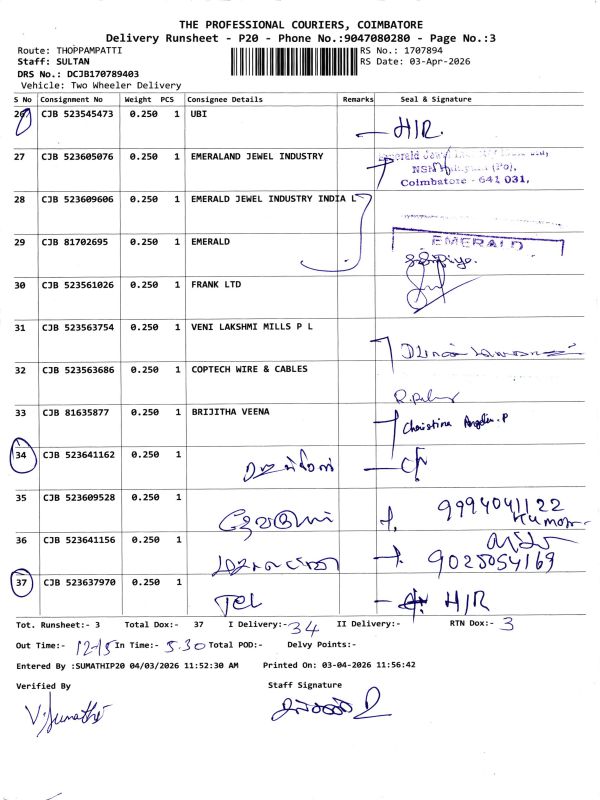 THE PROFESSIONAL COURIERS, COIMBATORE
Delivery Runsheet - P20 - Phone No.:9047080280 - Page No.:3
Route: THOPPAMPATTI
RS No.: 1707894
Staff: SULTAN
RS Date: 03-Apr-2026
DRS No.: DCJB170789403
Vehicle: Two Wheeler Delivery
S No Consignment No Weight PCS Consignee Details Remarks Seal & Signature
26 CJB 523545473 0.250 1 UBI H/R.
27 CJB 523605076 0.250 1 EMERALAND JEWEL INDUSTRY
Coimbatore - 641 031.
28 CJB 523609606 0.250 1 EMERALD JEWEL INDUSTRY INDIA L
29 CJB 81702695 0.250 1 EMERALD EMERALD
30 CJB 523561026 0.250 1 FRANK LTD
31 CJB 523563754 0.250 1 VENI LAKSHMI MILLS P L
32 CJB 523563686 0.250 1 COPTECH WIRE & CABLES
33 CJB 81635877 0.250 1 BRIJITHA VEENA Christina Angelin.P
34 CJB 523641162 0.250 1
35 CJB 523609528 0.250 1 9994041122
Kumar
36 CJB 523641156 0.250 1 9025054169
37 CJB 523637970 0.250 1 TCL H/R
Tot. Runsheet:- 3 Total Dox:- 37 I Delivery:- 34 II Delivery:- RTN Dox:- 3
Out Time:- 12-15 In Time:- 5.30 Total POD:- Delvy Points:-
Entered By :SUMATHIP20 04/03/2026 11:52:30 AM Printed On: 03-04-2026 11:56:42
Verified By Staff Signature
V. Sumathi